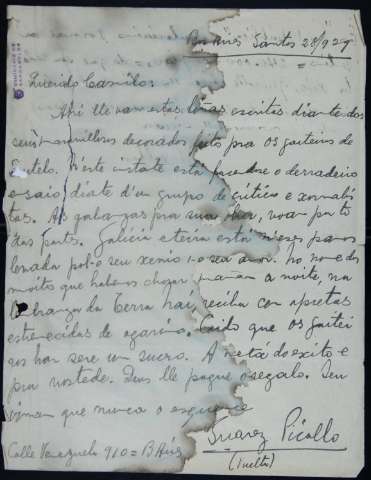 Buenos Santos 28/927
Querido Camilo:
Ahi lle van estas liñas escritas diante dos
seus maravillosos decorados feitos pra OS gaiteiros de
Soutelo. N'este instante está facendose o derradeiro
ensaio diante d'un grupo de críticos e xornalis
tas. As gabanzas pra sua obra, voan por to
das partes. Galicia enteira está n'eses panos
lenada polo seu xenio e o seu amor. No nome dos
moitos que habemos chorar mañan a noite, na
lembranza da Terra nai, reciba con apretas
estremecidas de agarimo. Coido que OS gaitei
ros han sere un suceso. A metá do exito e
pra vostede. Deus lle pague o regalo. Seu
irman que nunca o esquence
Suarez Picallo
(vuelta)
Calle Venezuela 910 = B Aires